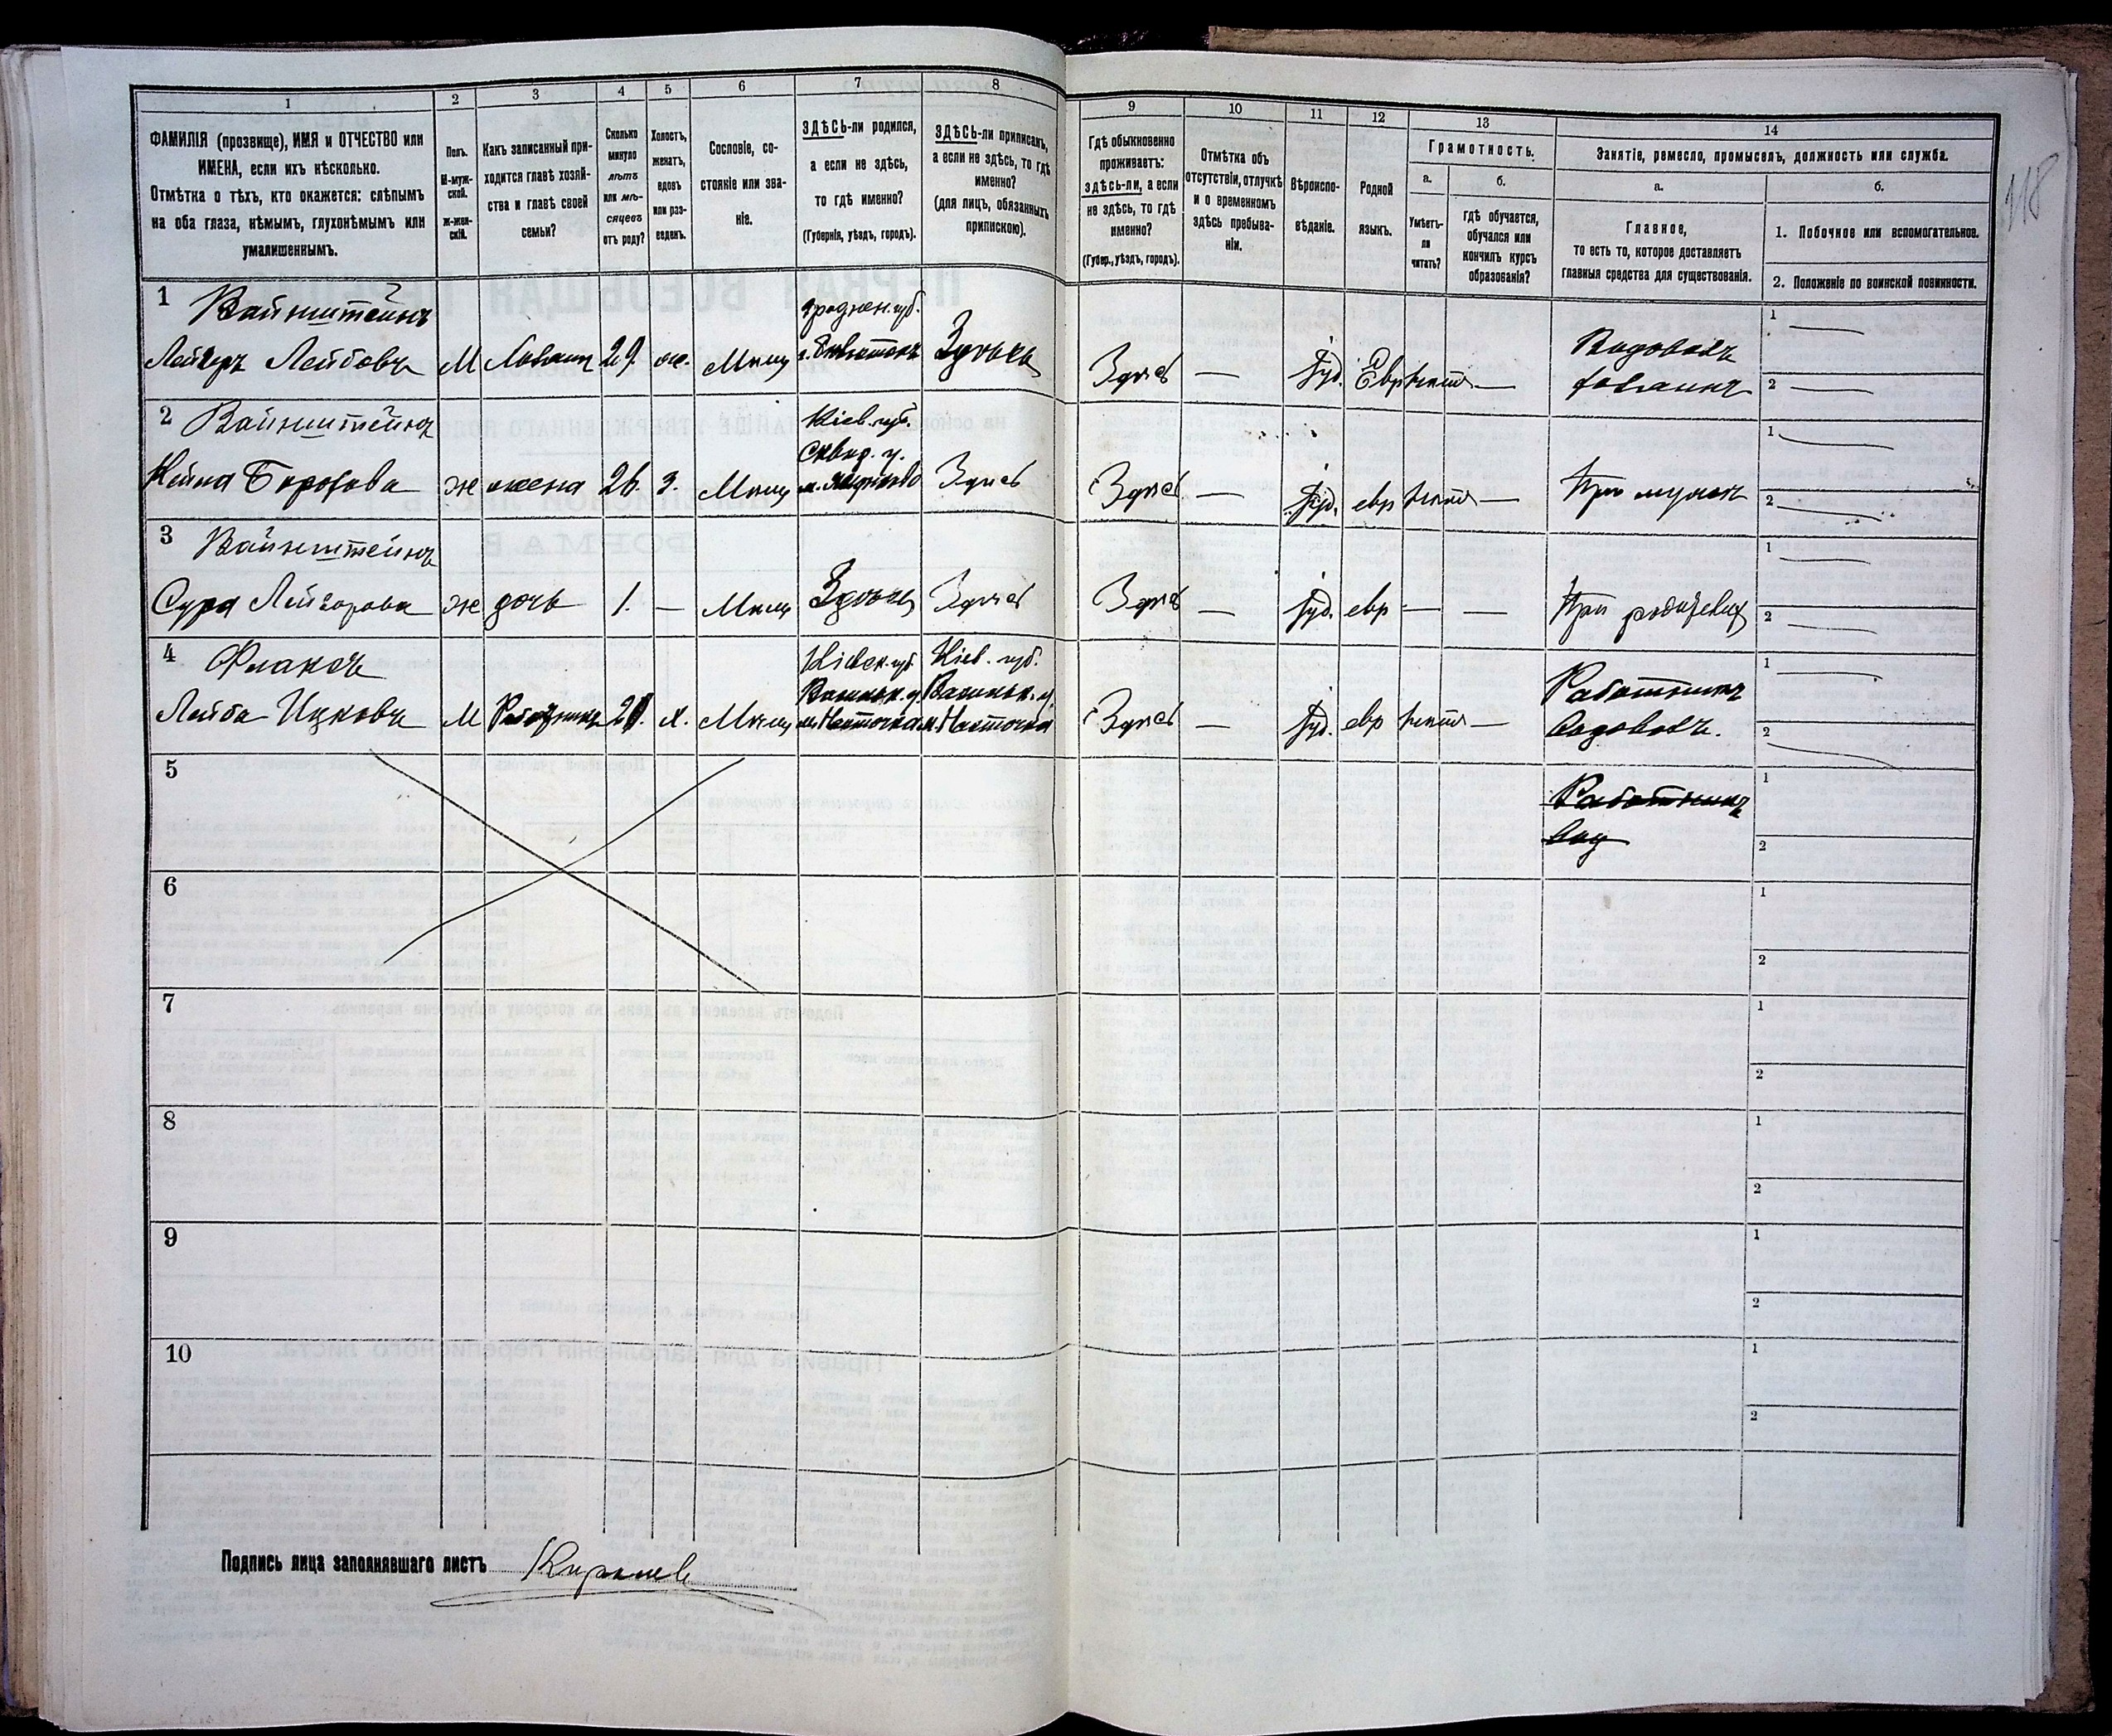 1
2
3
4
5
6
7
8
ФАМИЛІЯ (прозвище), ИМЯ и ОТЧЕСТВО или
ИМЕНА, если ихъ нѣсколько.
Отмѣтка о тѣхъ, кто окажется: слѣпымъ
на оба глаза, нѣмымъ, глухонѣмымъ или
умалишеннымъ.
Полъ.
М-муж-
ской.
Ж-жен-
скій.
Какъ записанный при-
ходится главѣ хозяй-
ства и главѣ своей
семьи?
Сколько
минуло
лѣтъ
или мѣ-
сяцевъ
отъ роду?
Холостъ,
женатъ,
вдовъ
или раз-
веденъ.
Сословіе, со-
стояніе или зва-
ніе.
ЗДѢСЬ-ли родился,
а если не здѣсь,
то гдѣ именно?
(Губернія, уѣздъ, городъ).
ЗДѢСЬ-ли приписанъ,
а если не здѣсь, то гдѣ
именно?
(для лицъ, обязанныхъ
припискою).
9
10
11
12
13
14
Гдѣ обыкновенно
проживаетъ:
здѣсь-ли, а если
не здѣсь, то гдѣ
именно?
(Губер., уѣздъ, городъ).
Отмѣтка объ
отсутствіи, отлучкѣ
и о временномъ
здѣсь пребыва-
ніи.
Вѣроиспо-
вѣданіе.
Родной
языкъ.
Грамотность.
а.
Умѣетъ-
ли
читать?
б.
Гдѣ обучается,
обучался или
кончилъ курсъ
образованія?
Занятіе, ремесло, промыселъ, должность или служба.
а.
Главное,
то есть то, которое доставляетъ
главныя средства для существованія.
б.
1. Побочное или вспомогательное.
2. Положеніе по воинской повинности.
118
1 Вайнштейнъ
Лейзеръ Лейбовъ М Хозяинъ 29. ж. Мѣщ
Гроднен. губ.
Здѣсь Здѣсь — Іуд. Евр —
Водовозъ
хозяинъ
1 —
2 —
2 Вайнштейнъ
ж жена 26. З. Мѣщ
Кіев. губ.
Сквир. у.
Здѣсь Здѣсь — Іуд. евр —
При мужѣ
1 —
2 —
3 Вайнштейнъ
Сура Лейзорова ж дочь 1. — Мѣщ Здѣсь Здѣсь Здѣсь — Іуд. евр — — При родителяхъ
1 —
2 —
4 Флаксъ
Лейба Ицковъ М Работникъ х. Мѣщ
Кіевск. губ.
Васильк. у.
м. Насточка
Кіев. губ.
Васильк. у.
м. Насточка
Здѣсь — Іуд. евр —
Работникъ
водовозъ.
1 —
2 —
5
Работникъ
вод
1
2
6
1
2
7
1
2
8
1
2
9
1
2
10
1
2
Подпись лица заполнявшаго листъ